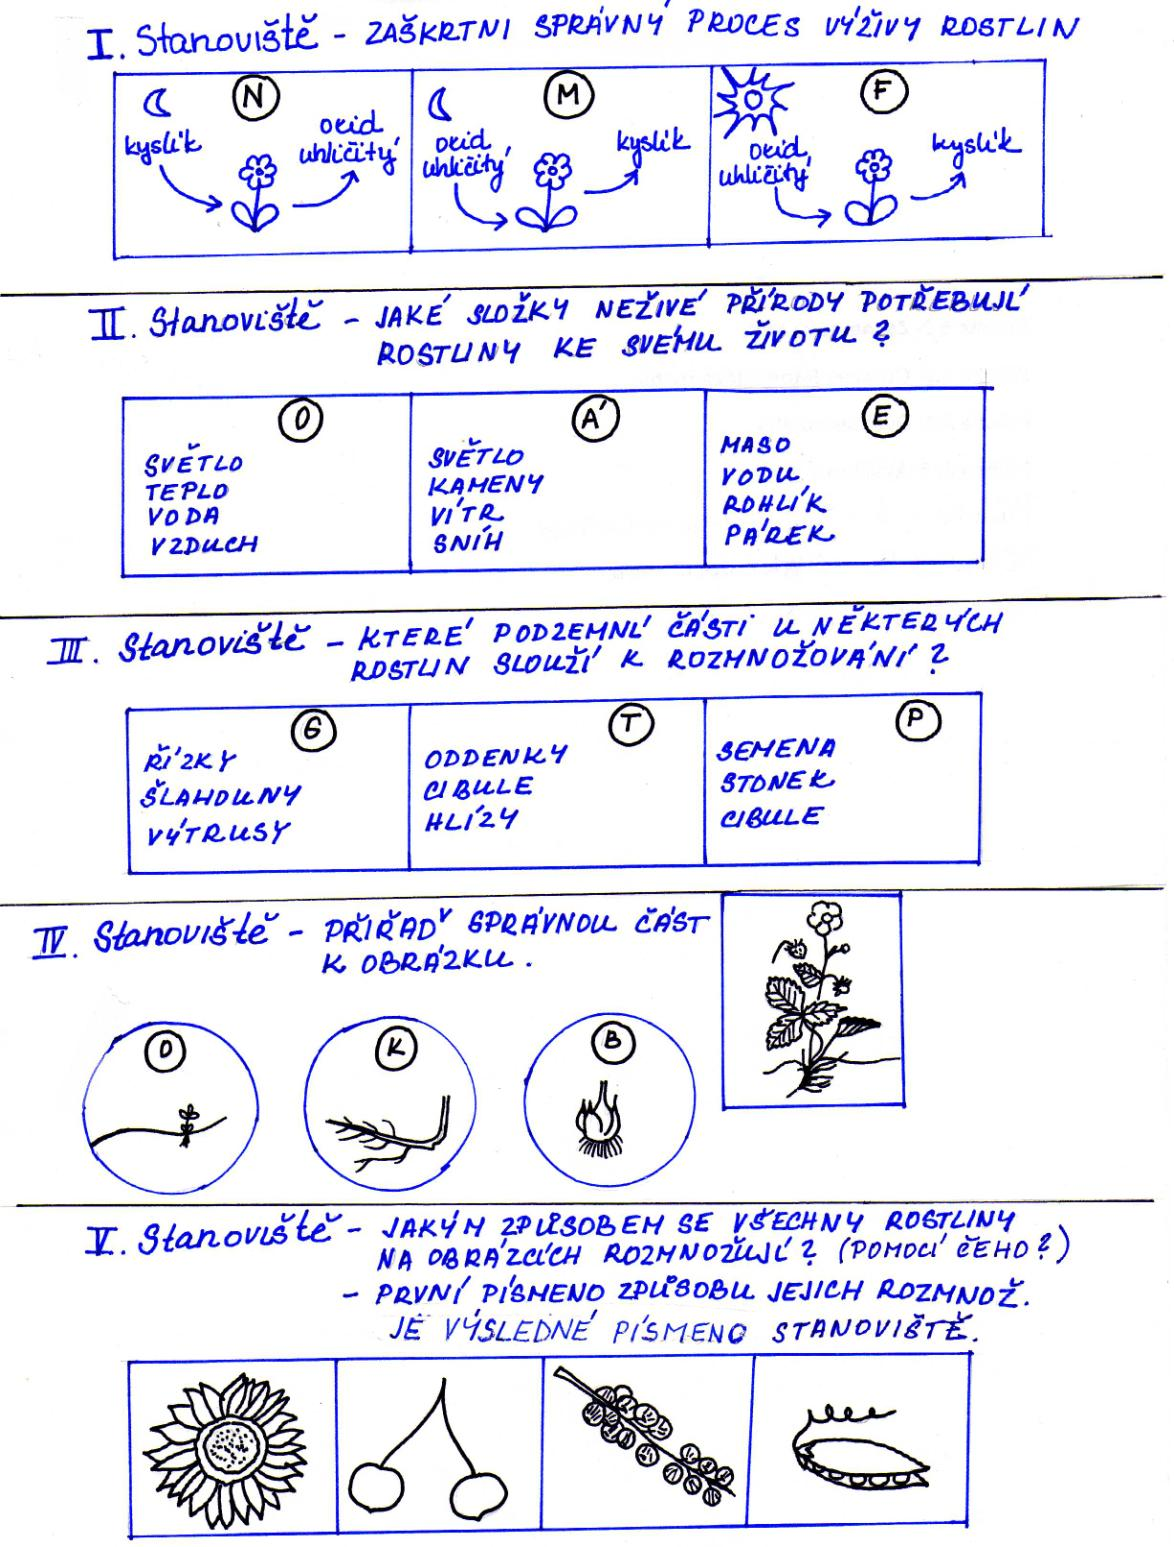 I. Stanoviště - ZAŠKRTNI SPRÁVNÝ PROCES VÝŽIVY ROSTLIN
N
kyslík
oxid
uhličitý
M
oxid
uhličitý
kyslík
F
oxid
uhličitý
kyslík
II. Stanoviště - JAKÉ SLOŽKY NEŽIVÉ PŘÍRODY POTŘEBUJÍ
ROSTLINY KE SVÉMU ŽIVOTU?
O
SVĚTLO
TEPLO
VODA
VZDUCH
Á
SVĚTLO
KAMENY
VÍTR
SNÍH
E
MASO
VODU
ROHLÍK
PÁREK
III. Stanoviště - KTERÉ PODZEMNÍ ČÁSTI U NĚKTERÝCH
ROSTLIN SLOUŽÍ K ROZMNOŽOVÁNÍ?
G
ŘÍZKY
ŠLAHOUNY
VÝTRUSY
T
ODDENKY
CIBULE
HLÍZY
P
SEMENA
STONEK
CIBULE
IV. Stanoviště - PŘIŘAĎ SPRÁVNOU ČÁST
K OBRÁZKU.
O
K
B
V. Stanoviště - JAKÝM ZPŮSOBEM SE VŠECHNY ROSTLINY
NA OBRÁZCÍCH ROZMNOŽUJÍ? (POMOCÍ ČEHO?)
- PRVNÍ PÍSMENO ZPŮSOBU JEJICH ROZMNOŽ.
JE VÝSLEDNÉ PÍSMENO STANOVIŠTĚ.